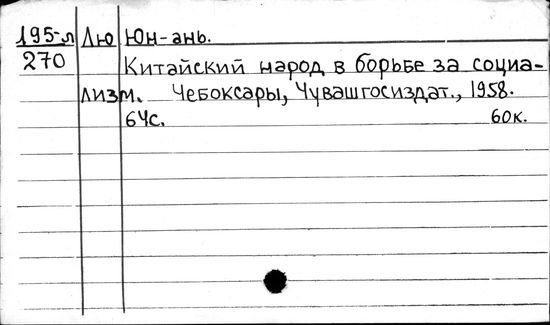 195-л Лю Юн-ань.
270 Китайский народ в борьбе за социа-
лизм. Чебоксары, Чувашгосиздат., 1958.
64с. 60к.